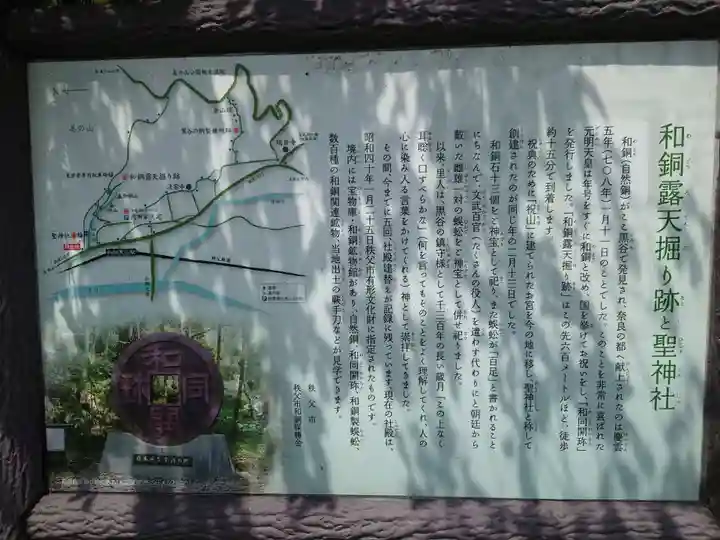 和銅露天掘り跡と聖神社
和銅(自然銅)がここ黒谷で発見され、奈良の都へ献上されたのは慶雲
五年(七〇八年)一月十一日のことでした。このことを非常に喜ばれた
元明天皇は年号をすぐに和銅と改め、国を挙げてお祝いをし、「和同開珎」
を発行しました。「和銅露天掘り跡」はこの先六百メートルほど、徒歩
約十五分で到着します。
祝典のために「祝山」に建てられたお宮を今の地に移し「聖神社」と称して
創建されたのが同じ年の二月十三日でした。
和銅石十三個をご神宝として祀り、また蜈蚣が「百足」と書かれること
にちなんで、文武百官(たくさんの役人)を遣わす代わりにと朝廷から
戴いた雌雄一対の蜈蚣をご神宝として併せ祀りました。
以来、里人は「黒谷の鎮守様」として千三百年の長い歳月「この上なく
耳聡く口すべらかな」(何を言ってもそのことをよく理解してくれ、人の
心に染み入る言葉をかけてくれる)神として崇拝してきました。
その間、今までに五回、社殿建替えが記録に残っています。現在の社殿は、
昭和四十年一月二十五日秩父市有形文化財に指定されたものです。
境内には宝物庫・和銅鉱物館があり、自然銅、和同開珎、和銅製蜈蚣、
数百種の和銅関連鉱物、当地出土の蕨手刀などが見学できます。
秩父市
秩父市和銅保勝会
和銅露天掘り跡
聖神社
和同開珎